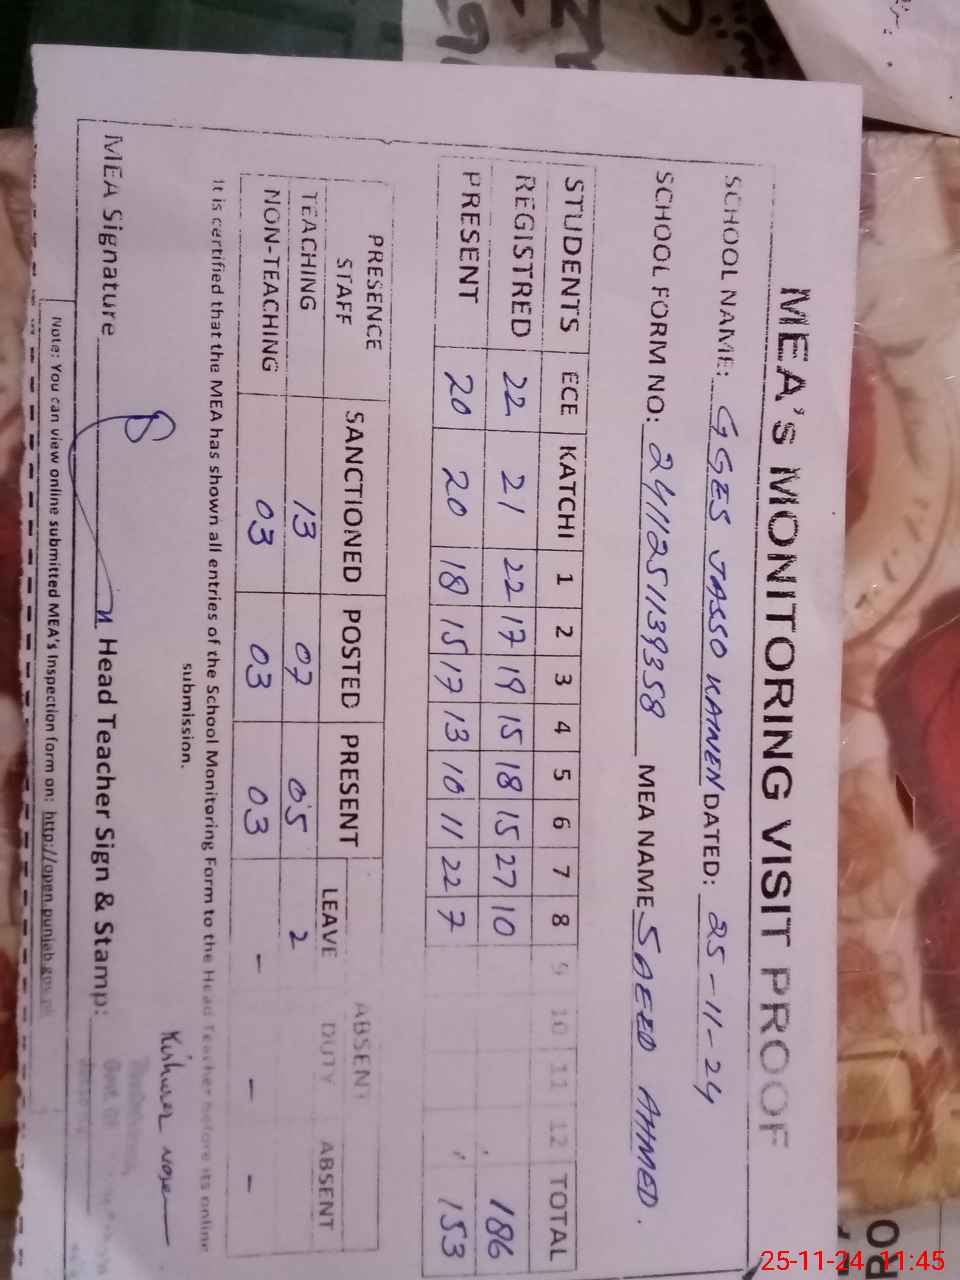 MEA's MONITORING VISIT PROOF
SCHOOL NAME: GGES JASSO KANWEN DATED: 25-11-24
SCHOOL FORM NO: 2411251139358 MEA NAME SAEED AHMED.
STUDENTS ECE KATCHI 1 2 3 4 5 6 7 8 9 10 11 12 TOTAL
REGISTRED 22 21 22 17 19 15 18 15 27 10 186
PRESENT 20 20 18 15 17 13 10 11 22 7 153
PRESENCE STAFF SANCTIONED POSTED PRESENT ABSENT
LEAVE DUTY ABSENT
TEACHING 13 07 05 2
NON-TEACHING 03 03 03 - - -
It is certified that the MEA has shown all entries of the School Monitoring Form to the Head Teacher before its online
submission.
MEA Signature Head Teacher Sign & Stamp:
Note: You can view online submitted MEA's Inspection form on: http://open.punjab.gov.pk
25-11-24 11:45